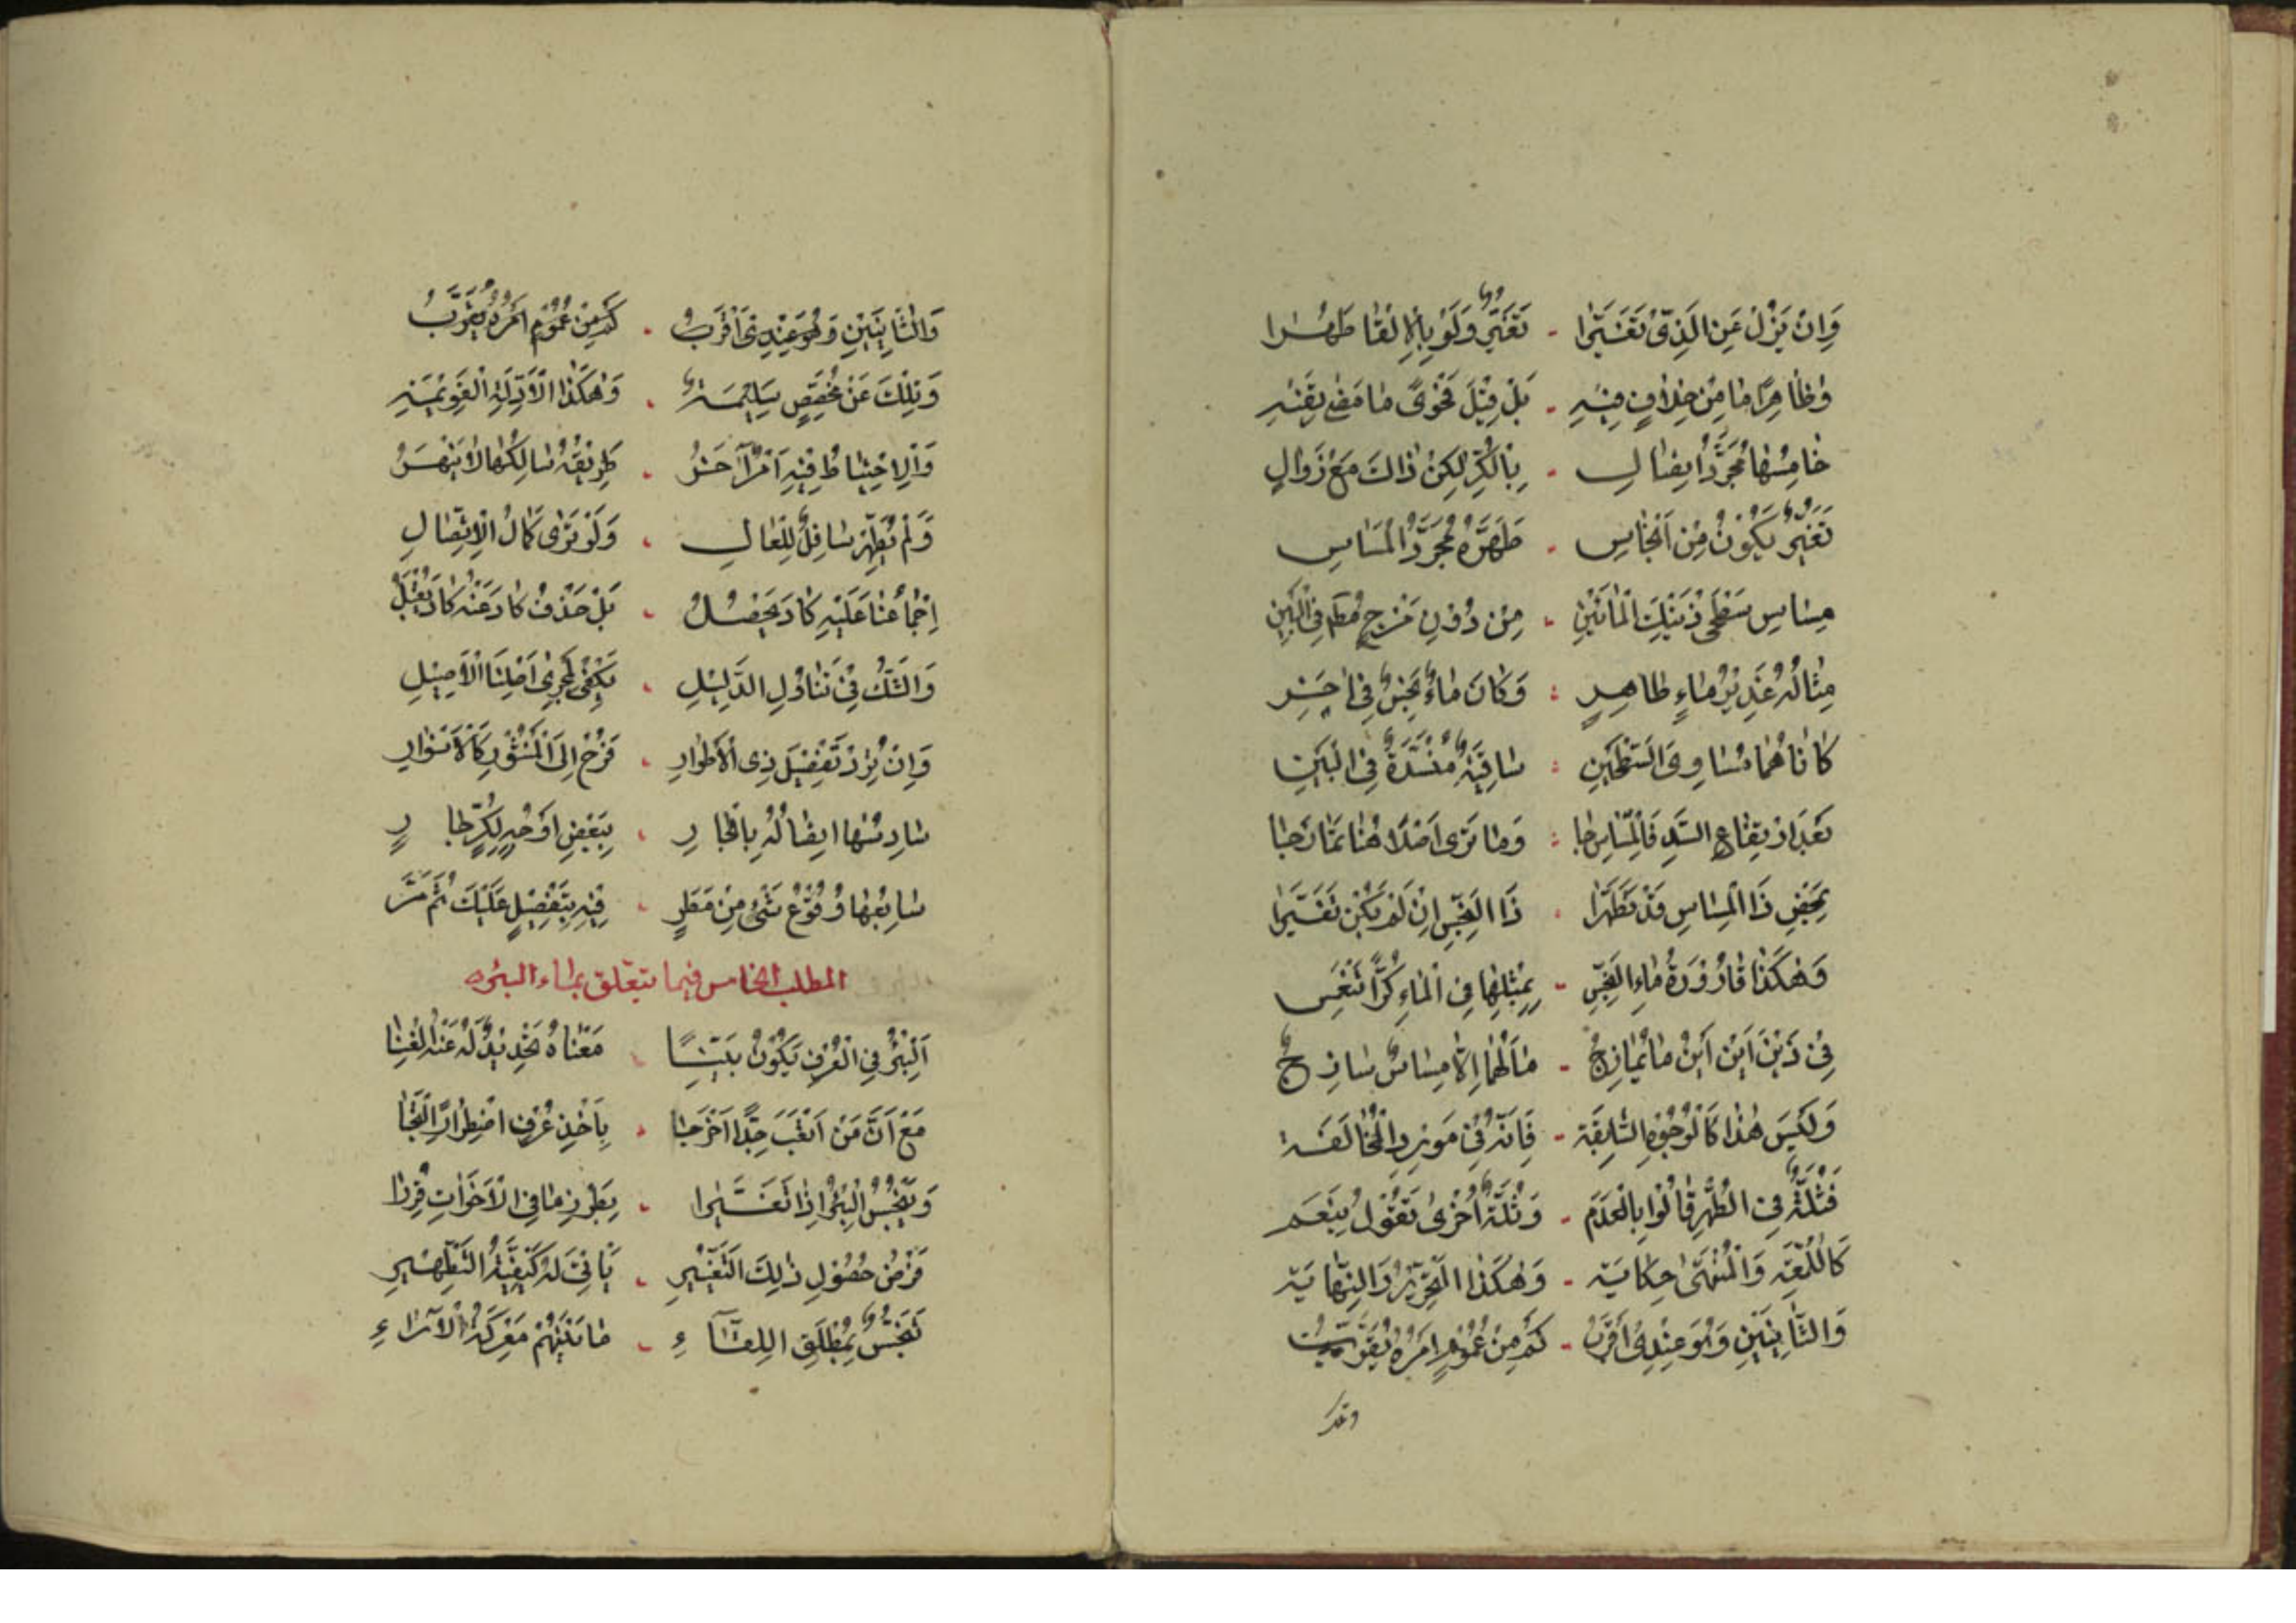 وَاِنْ يَزُلْ عَنِ الَّذِی تَغَيَّرا - تَغَيُّرٌ وَلَوْ بِاِلْقا طَهُرا
وَظاهِرًا مٰا مِنْ خِلافٍ فيهِ - بَلْ قيلَ فَحْوىٰ مٰا مَضىٰ يَقيهِ
خامِسُها مُجَرَّدُ ايصالِ - بِالْكُرِّ لكِنْ ذاكَ مَعْ زَوالِ
تَغَيُّرٌ يَكُونُ مِنْ اَنْجاسِ - طَهَّرَهُ مُجَرَّدُ الْمَساسِ
مِساسِ سَطْحَیْ ذَيْنِكَ الْمائَيْنِ - مِنْ دُونِ مَزْجٍ فی الْبَيْنِ
مِثالُهُ غَديرُ ماءٍ طاهِرٍ : وَكانَ ماءٌ نَجِسٌ فی
كانا هُما مُساوِیَ السَّطْحَيْنِ : ساقِيَةٌ مُنْسَدَّةٌ فِی الْبَيْنِ
بَعْدَ ارْتِفاعِ السَّدِّ فَالْمَساسُ جا : وَما تَرىٰ اَصْلًا هُنا تَمازُجا
بِمَحْضِ ذَا الْمِساسِ قَدْ تَطَهَّرا . ذَا النَّجِسُ اِنْ لَمْ يَكُنْ تَغَيَّرا
وَهٰكَذا قارُورَةُ ماءِ النَّجِسِ - بِمِثْلِها فِی الْماءِ كُرًّا تَنْغَمِسُ
فی ذَيْنِ اَيْنَ اَيْنَ ما يُمازِجُ - مالَهُما اِلّا مِساسٌ ساذِجٌ
وَلَيْسَ هٰذا كَالْوُجُوهِ السّالِفَة - فَاِنَّهُ فی مَوْرِدِ الْمُخالَفَة
فَثُلَّةٌ فِی الطُّهْرِ قالُوا بِالْعَدَم - وَثُلَّةٌ اُخْرىٰ تَقُولُ بِنَعَم
كَاللُّمْعَةِ وَالْمُنْتَهىٰ حِكايَة - وَهٰكَذَا التَّحْريرُ وَالنِّهايَة
وَالثّانِيَيْنِ وَهُوَ عِنْدی اَقْرَبُ - كَمْ مِنْ عُمُومٍ اَمْرُهُ يُقَرِّبُ
وَالثّانِيَيْنِ وَهُوَ عِنْدِی اَقْرَبُ . كَمْ مِنْ عُمُومٍ اَمْرُهُ يُقَرِّبُ
وَتِلْكَ عَنْ مُخَصِّصٍ سَليمَةٌ . وَهٰكَذَا الْاَدِلَّةُ الْقَويمَة
وَالْاِحْتِياطُ فيهِ اَمْرٌ حَسَنٌ . طَريقَةٌ سالِكُها لا
وَلَمْ يُطَهِّرْ سافِلٌ لِلْعالِ . وَلَوْ تَرىٰ كَمالَ الْاِتِّصالِ
اِجْماعُنا عَلَيْهِ كادَ يَحْصُلُ . بَلْ حَذْفُ كادَ عَنْهُ كادَ يُقْبَلُ
وَالشَّكُّ فی تَناوُلِ الدَّليلِ . يَكْفی لِجَرْیِ اَصْلِنَا الْاَصيلِ
وَاِنْ تُرِدْ تَفْضيلَ ذِی الْاَطْوارِ . فَرُحْ اِلَى الْمَنْثُورِ كَالْاَنْوارِ
سادِسُها ايصالُهُ بِالْجارِ . بِبَعْضِ اَوْجُهٍ لِكُرٍّ جارٍ
سابِعُها وُقُوعُ شَیْءٍ مِنْ مَطَرٍ . فيهِ بِتَفْصيلٍ عَلَيْكَ ثَمَّ مَرَّ
المطلب الخامس فيما يتعلق بماء البئر
اَلْبِئْرُ فِی الْعُرْفِ يَكُونُ بَيِّنًا . مَعْناهُ تَحْديدٌ لَهُ عَنْهُ الْغِنا
مَعَ اَنَّ مَنْ اَتْعَبَ جِدًّا اَخْرَجا . بِاَخْذِ عُرْفٍ اضْطِرارًا اِلْتَجا
وَيَنْجُسُ الْبِئْرُ اِذا تَغَيَّرا . بِطَرْزِ ما فِی الْاَخَواتِ قُرِّرا
فَمِنْ حُصُولِ ذٰلِكَ التَّغْييرِ . يَأْتی لَهُ كَيْفِيَّةُ التَّطْهيرِ
تَنَجُّسٌ بِمُطْلَقِ اللِّقآءِ . ما بَيْنَهُمْ مَعْرَكَةُ الْآراءِ